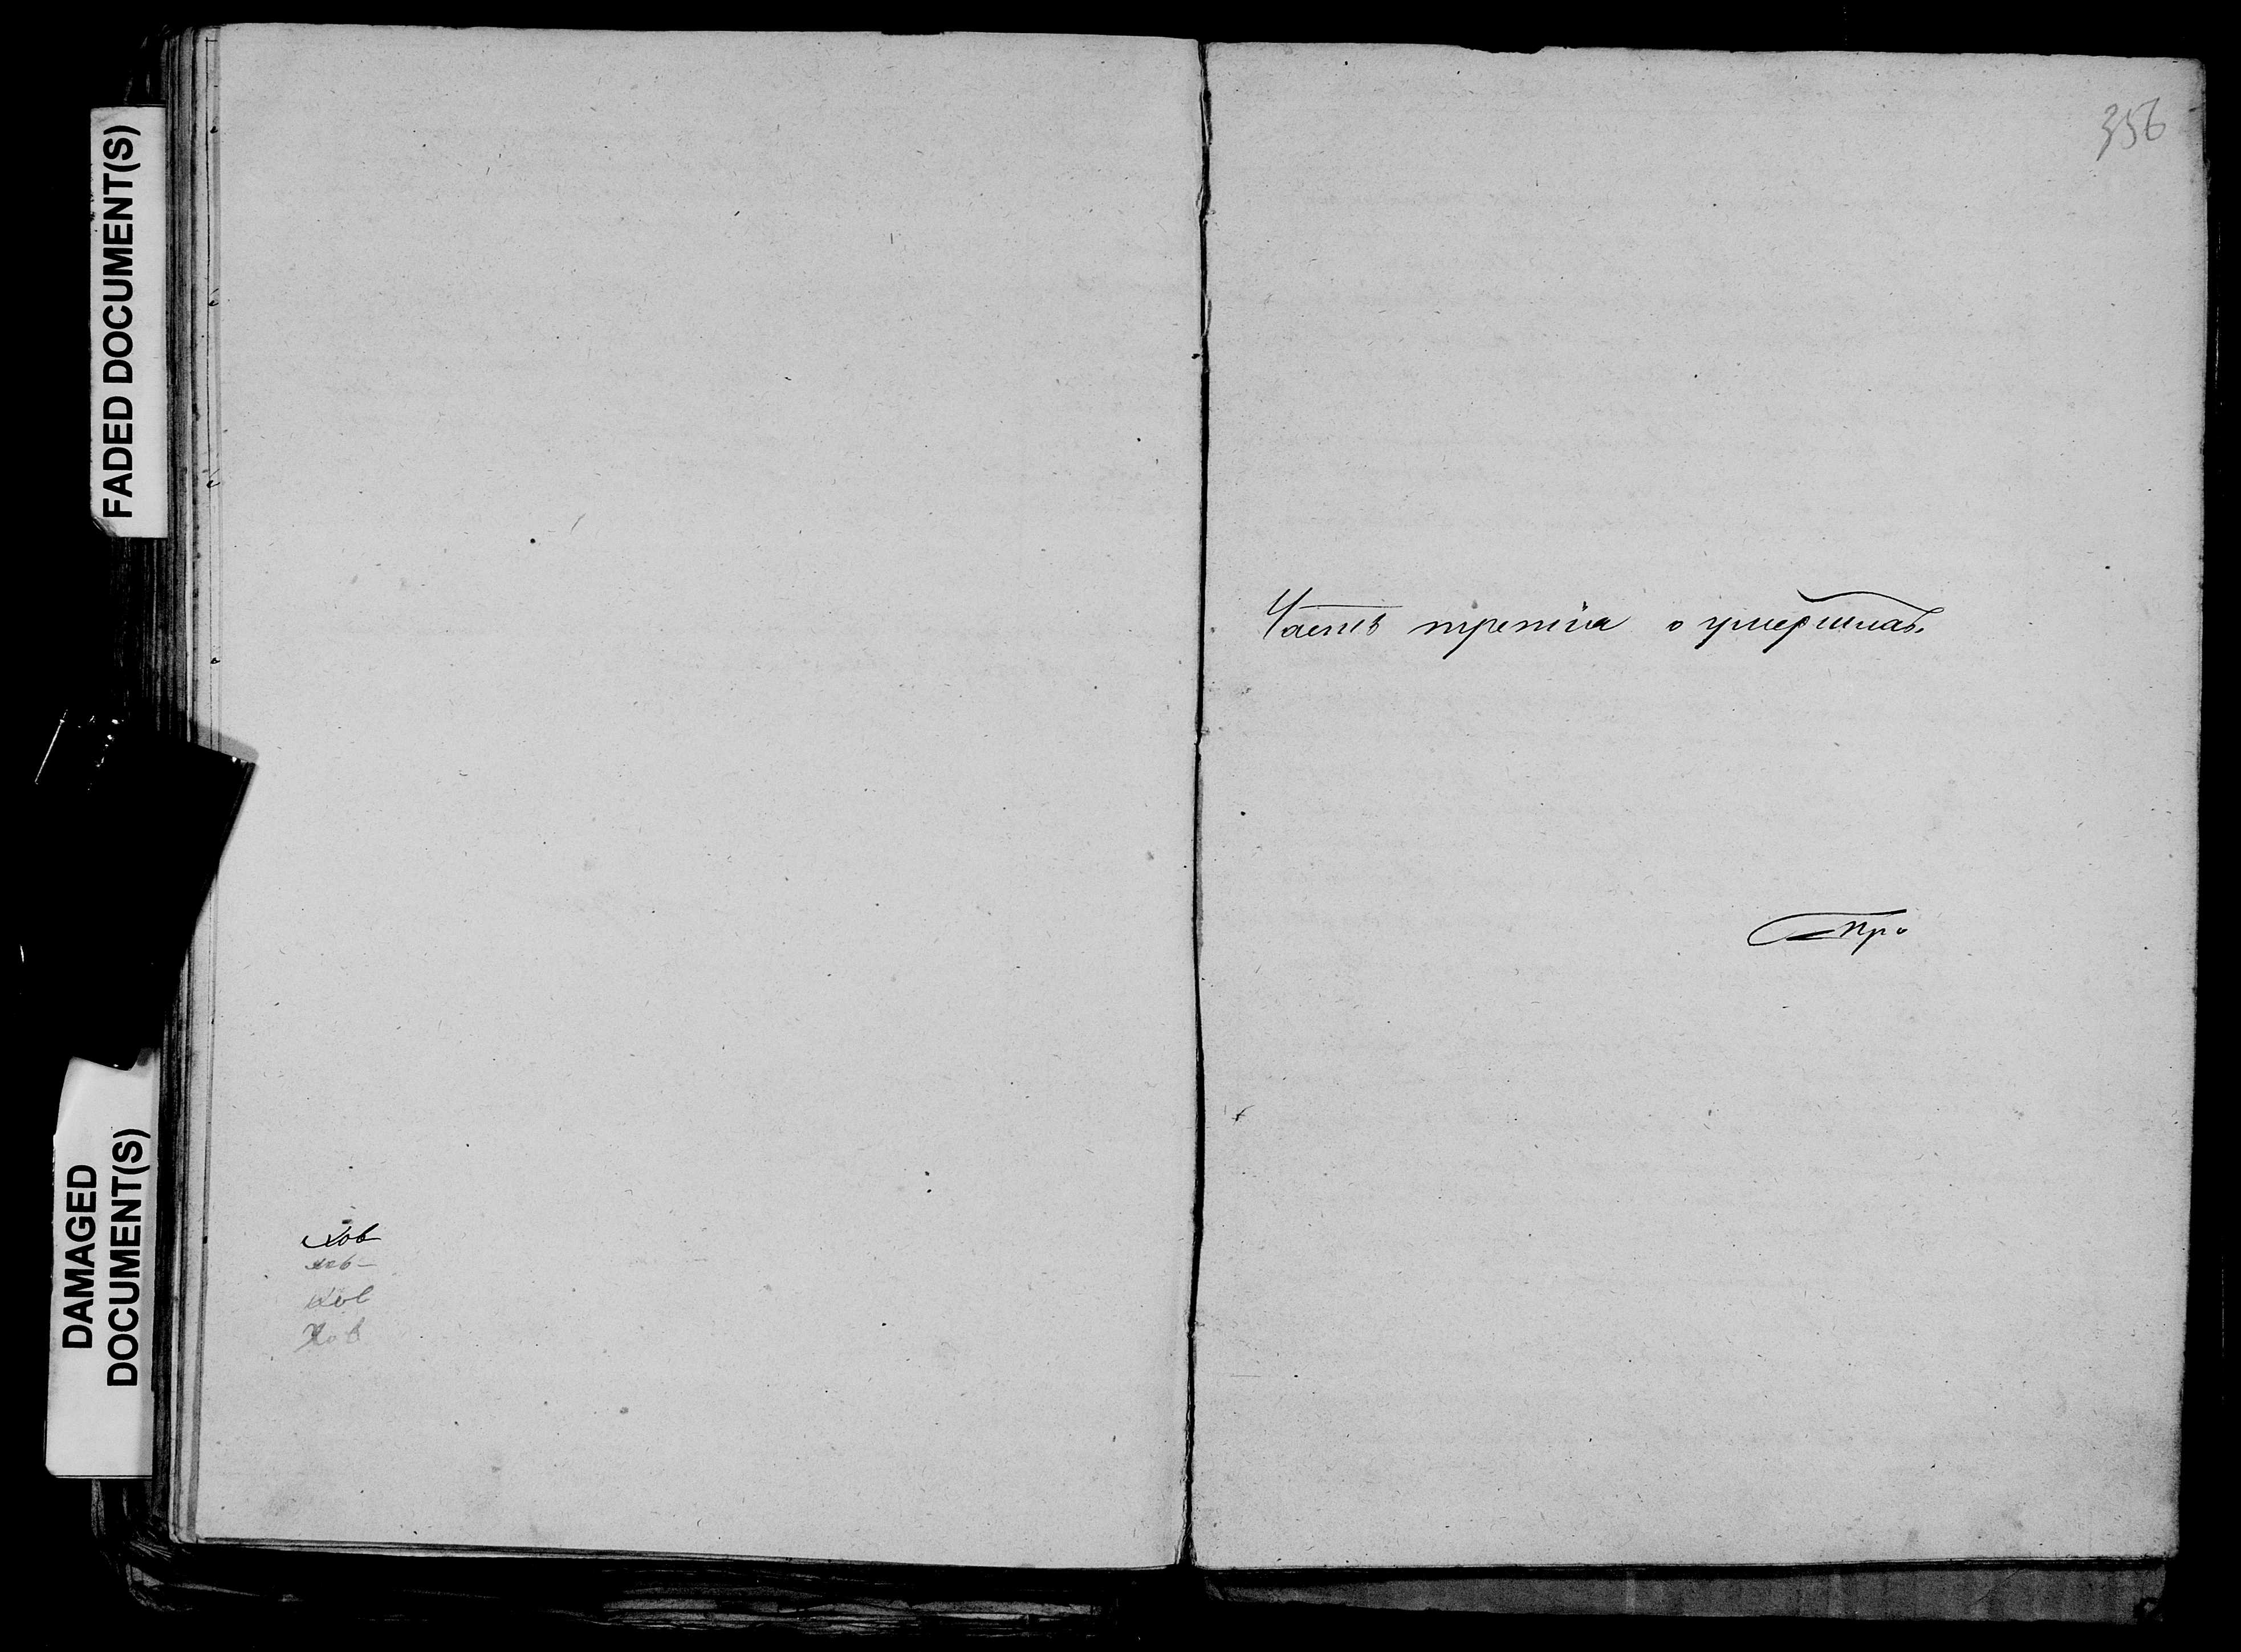 FADED DOCUMENT(S)
DAMAGED
DOCUMENT(S)
ков
ков
ков
356
Часть третія о умершихъ
Про